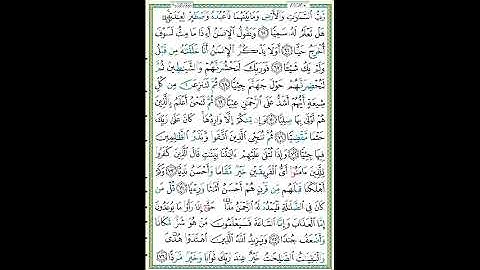 رَّبُّ ٱلسَّمَٰوَٰتِ وَٱلْأَرْضِ وَمَا بَيْنَهُمَا فَٱعْبُدْهُ وَٱصْطَبِرْ لِعِبَٰدَتِهِۦ
هَلْ تَعْلَمُ لَهُۥ سَمِيًّا ﴿٦٥﴾ وَيَقُولُ ٱلْإِنسَٰنُ أَءِذَا مَا مِتُّ لَسَوْفَ
أُخْرَجُ حَيًّا ﴿٦٦﴾ أَوَلَا يَذْكُرُ ٱلْإِنسَٰنُ أَنَّا خَلَقْنَٰهُ مِن قَبْلُ
وَلَمْ يَكُ شَيْـًٔا ﴿٦٧﴾ فَوَرَبِّكَ لَنَحْشُرَنَّهُمْ وَٱلشَّيَٰطِينَ ثُمَّ
لَنُحْضِرَنَّهُمْ حَوْلَ جَهَنَّمَ جِثِيًّا ﴿٦٨﴾ ثُمَّ لَنَنزِعَنَّ مِن كُلِّ
شِيعَةٍ أَيُّهُمْ أَشَدُّ عَلَى ٱلرَّحْمَٰنِ عِتِيًّا ﴿٦٩﴾ ثُمَّ لَنَحْنُ أَعْلَمُ بِٱلَّذِينَ
هُمْ أَوْلَىٰ بِهَا صِلِيًّا ﴿٧٠﴾ وَإِن مِّنكُمْ إِلَّا وَارِدُهَا كَانَ عَلَىٰ رَبِّكَ
حَتْمًا مَّقْضِيًّا ﴿٧١﴾ ثُمَّ نُنَجِّى ٱلَّذِينَ ٱتَّقَوا۟ وَّنَذَرُ ٱلظَّٰلِمِينَ
فِيهَا جِثِيًّا ﴿٧٢﴾ وَإِذَا تُتْلَىٰ عَلَيْهِمْ ءَايَٰتُنَا بَيِّنَٰتٍ قَالَ ٱلَّذِينَ كَفَرُوا۟
لِلَّذِينَ ءَامَنُوٓا۟ أَىُّ ٱلْفَرِيقَيْنِ خَيْرٌ مَّقَامًا وَأَحْسَنُ نَدِيًّا ﴿٧٣﴾ وَكَمْ
أَهْلَكْنَا قَبْلَهُم مِّن قَرْنٍ هُمْ أَحْسَنُ أَثَٰثًا وَرِءْيًا ﴿٧٤﴾ قُلْ مَن
كَانَ فِى ٱلضَّلَٰلَةِ فَلْيَمْدُدْ لَهُ ٱلرَّحْمَٰنُ مَدًّا حَتَّىٰٓ إِذَا رَأَوْا۟ مَا يُوعَدُونَ
إِمَّا ٱلْعَذَابَ وَإِمَّا ٱلسَّاعَةَ فَسَيَعْلَمُونَ مَنْ هُوَ شَرٌّ مَّكَانًا
وَأَضْعَفُ جُندًا ﴿٧٥﴾ وَيَزِيدُ ٱللَّهُ ٱلَّذِينَ ٱهْتَدَوْا۟ هُدًى
وَٱلْبَٰقِيَٰتُ ٱلصَّٰلِحَٰتُ خَيْرٌ عِندَ رَبِّكَ ثَوَابًا وَخَيْرٌ مَّرَدًّا ﴿٧٦﴾